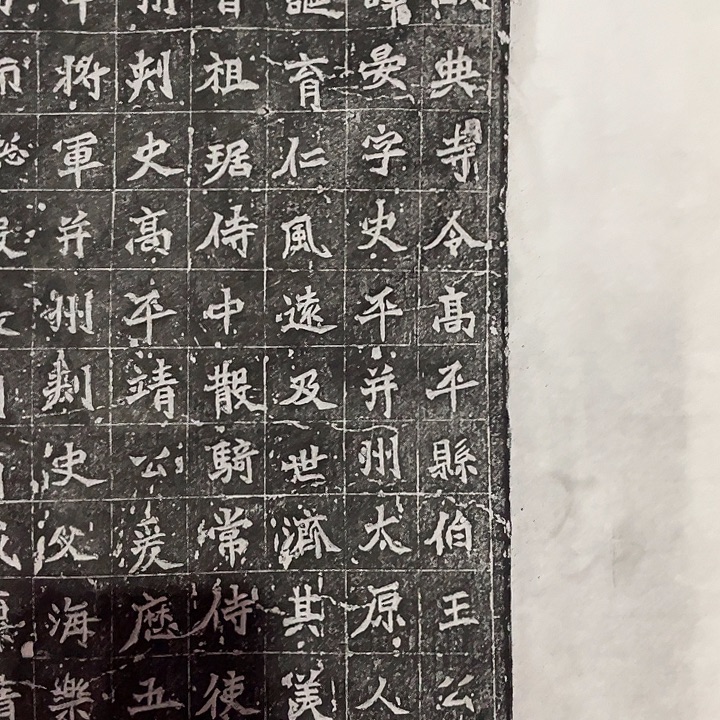 典寺令高平縣伯王公
諱晏字史平并州太原人
育仁風遠及世濟其美
祖琚侍中散騎常侍使
州刾史高平靖公羨歷五
將軍并州刾史父海樂